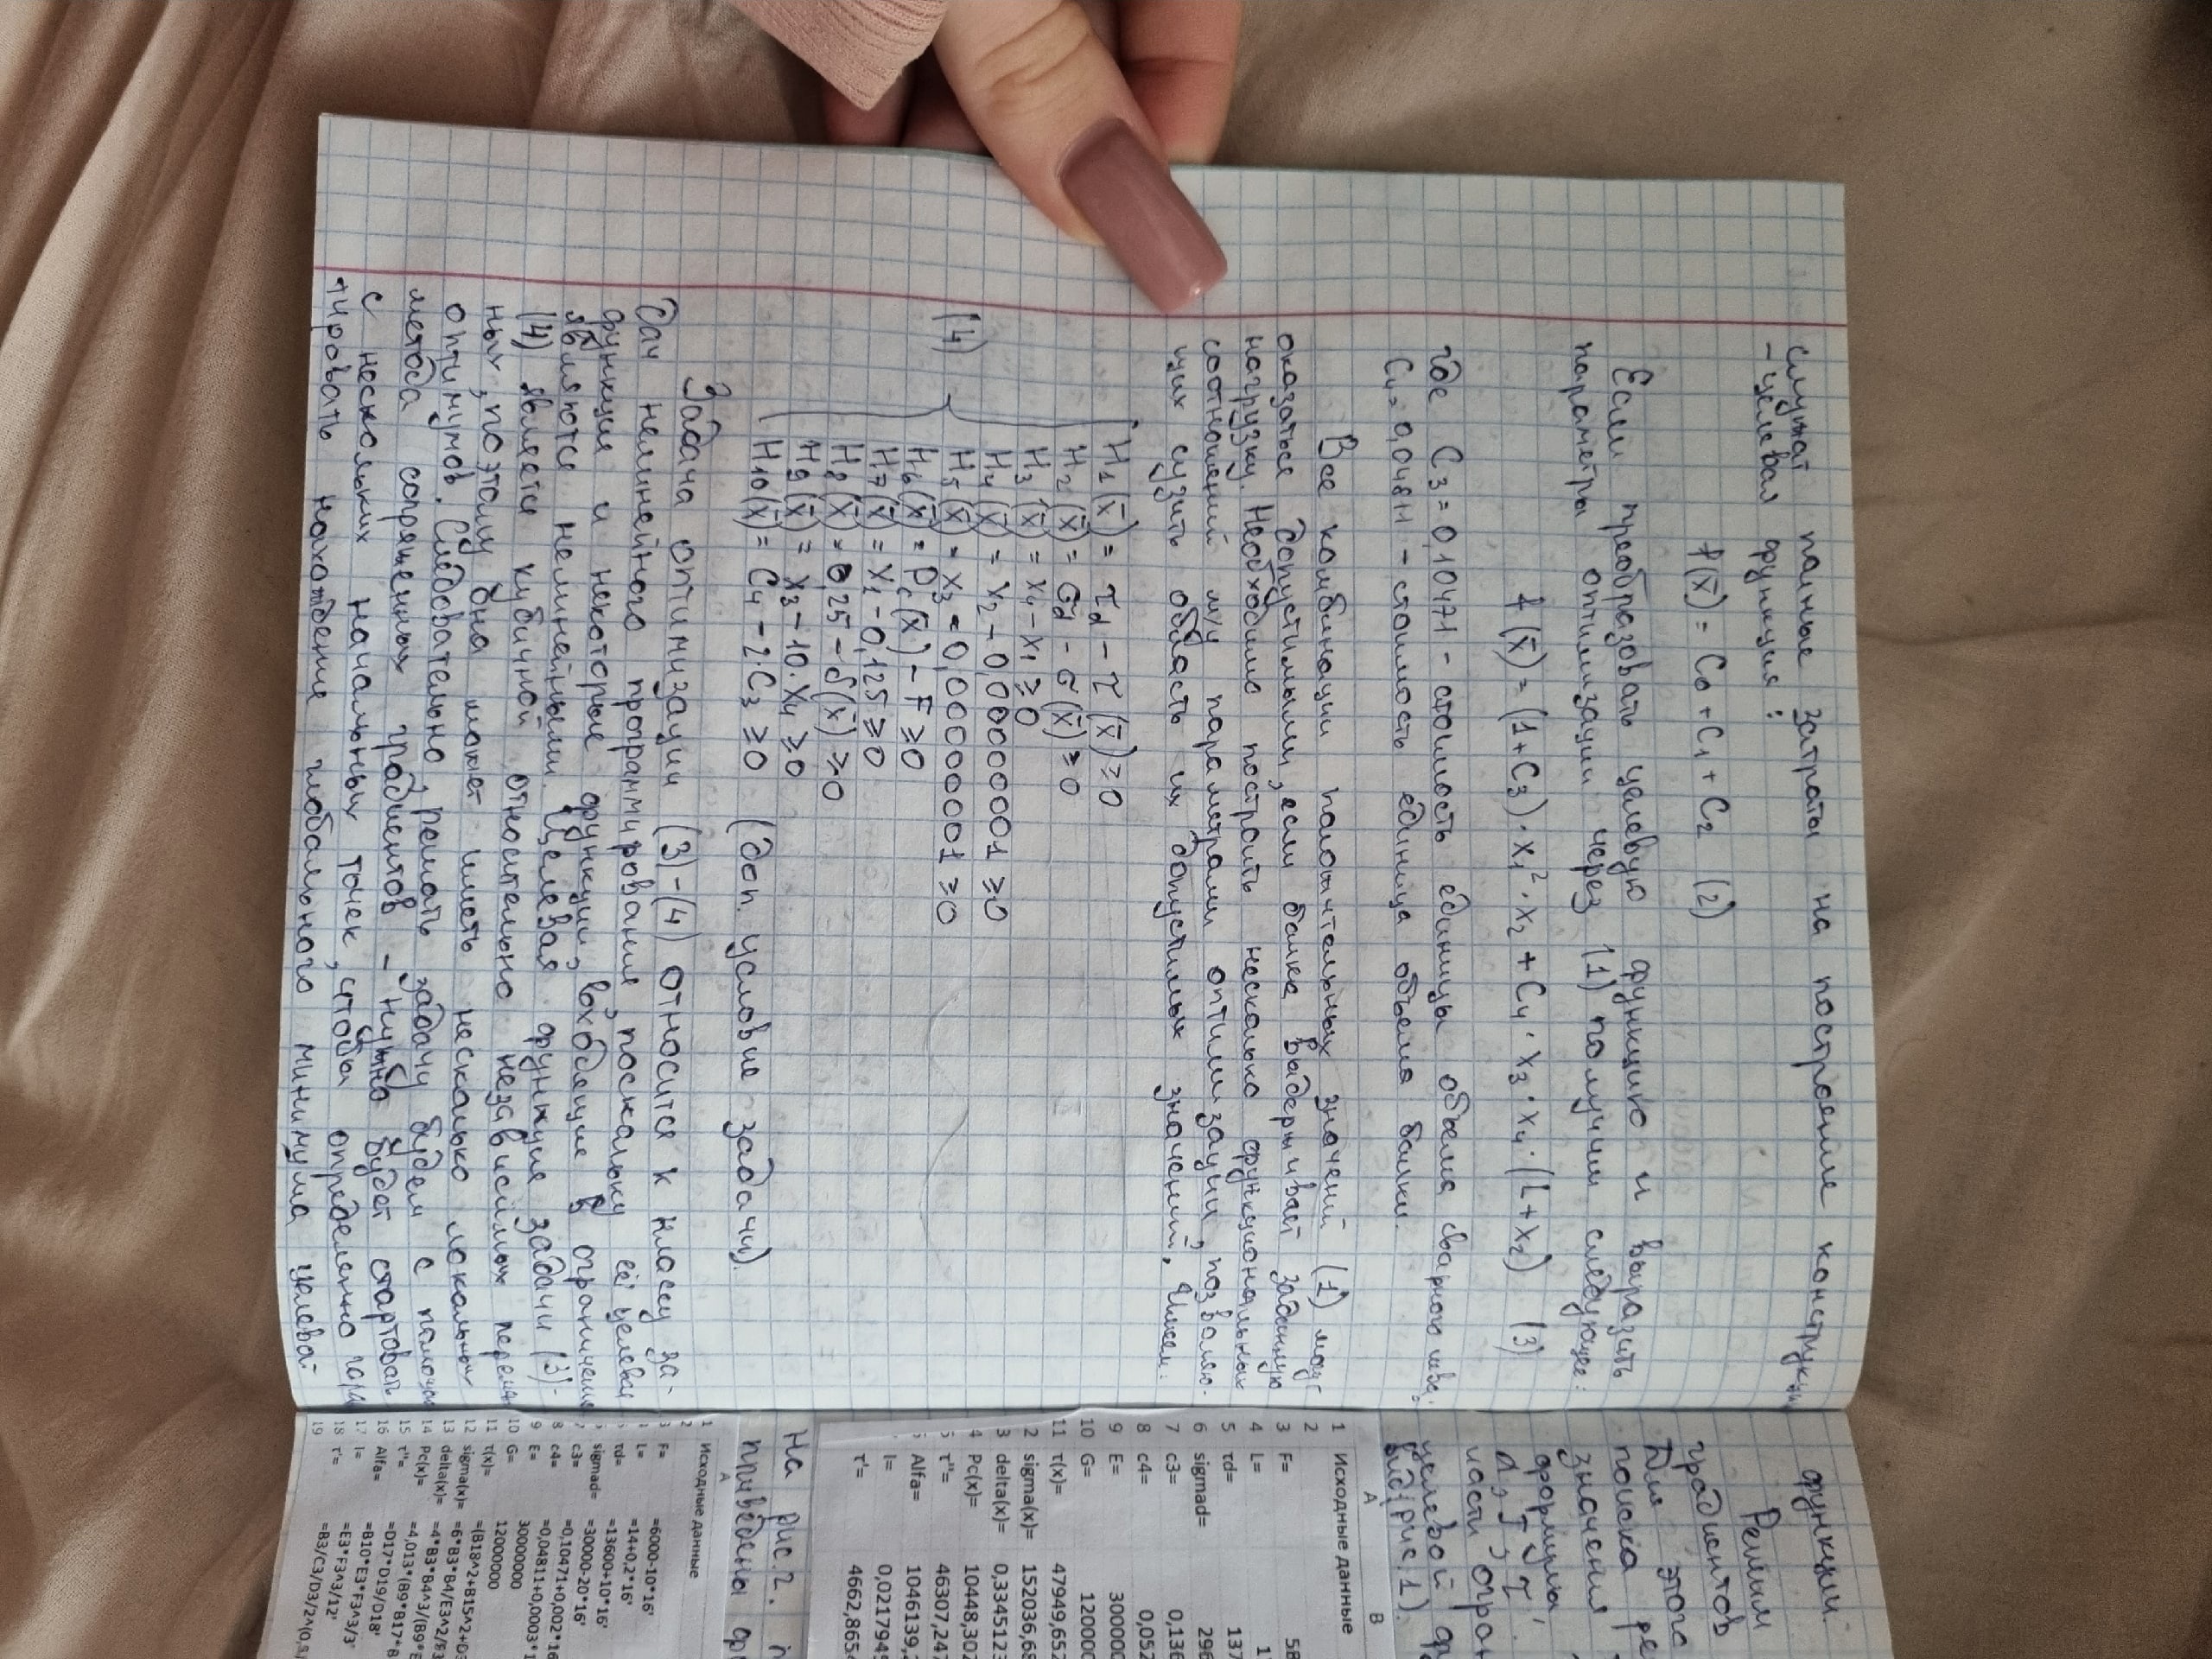 служат полные затраты на построение конструкции
- целевая функция:
f(x̄) = C₀ + C₁ + C₂ (2)
Если преобразовать целевую функцию и выразить
параметры оптимизации через (1) получим следующее:
f(x̄) = (1+C₃)·x₁²·x₂ + C₄·x₃·x₄·(L+x₂) (3)
где C₃ = 0,10471 - стоимость единицы объема сварного шва;
C₄ = 0,04811 - стоимость единица объема балки.
Все комбинации положительных значений (1) могут
оказаться допустимыми, если балка выдерживает заданную
нагрузку. Необходимо построить несколько функциональных
соотношений м/у параметрами оптимизации, позволяю-
щих сузить область их допустимых значений. Имеем:
H₁(x̄) = τd - τ(x̄) ≥ 0
H₂(x̄) = σd - σ(x̄) ≥ 0
H₃(x̄) = x₄ - x₁ ≥ 0
H₄(x̄) = x₂ - 0,00000001 ≥ 0
(4) H₅(x̄) = x₃ - 0,00000001 ≥ 0
H₆(x̄) = Pc(x̄) - F ≥ 0
H₇(x̄) = x₁ - 0,125 ≥ 0
H₈(x̄) = 0,25 - δ(x̄) ≥ 0
H₉(x̄) = x₃ - 10·x₄ ≥ 0
H₁₀(x̄) = C₄ - 2·C₃ ≥ 0 (доп. условие задачи).
Задача оптимизации (3)-(4) относится к классу за-
дач нелинейного программирования, поскольку её целевая
функция и некоторые функции, входящие в ограничения
являются нелинейными. Целевая функция задачи (3)-
(4) является кубичной относительно независимых перемен
ных, поэтому она может иметь несколько локальных
оптимумов. Следовательно, решать задачу будем с помощью
метода сопряженных градиентов - нужно будет стартовать
с нескольких начальных точек, чтобы определенно гаран
тировать нахождение глобального минимума целевой
функции.
Решим
градиентов
Для этого
поиска ре
значения
формула,
α, J, τ
ности огран
целевой фу
вид (рис. 1).
A B
1 Исходные данные
2
3 F= 58
4 L= 1
5 τd= 137
6 sigmad= 296
7 c3= 0,136
8 c4= 0,052
9 E= 300000
10 G= 120000
11 τ(x)= 47949,652
2 sigma(x)= 152036,68
3 delta(x)= 0,3345123
4 Pc(x)= 10448,302
5 τ''= 46307,247
Alfa= 1046139,2
I= 0,0217949
τ'= 4662,8654
На рис. 2.
приведены фо
A
1 Исходные данные
2
3 F= =6000-10*16'
4 L= =14+0,2*16'
τd= =13600+10*16'
sigmad= =30000-20*16'
7 c3= =0,10471+0,002*16
8 c4= =0,04811+0,0003*1
9 E= 30000000
10 G= 12000000
11 τ(x)= =(B18^2+B15^2+D3
12 sigma(x)= =6*B3*B4/E3^2/F3
13 delta(x)= =4*B3*B4^3/(B9*E
14 Pc(x)= =4,013*(B9*B17*B
15 τ''= =D17*D19/D18'
16 Alfa= =B10*E3*F3^3/3'
17 I= =E3*F3^3/12'
18 τ'= =B3/C3/D3/2^(0,5)
19